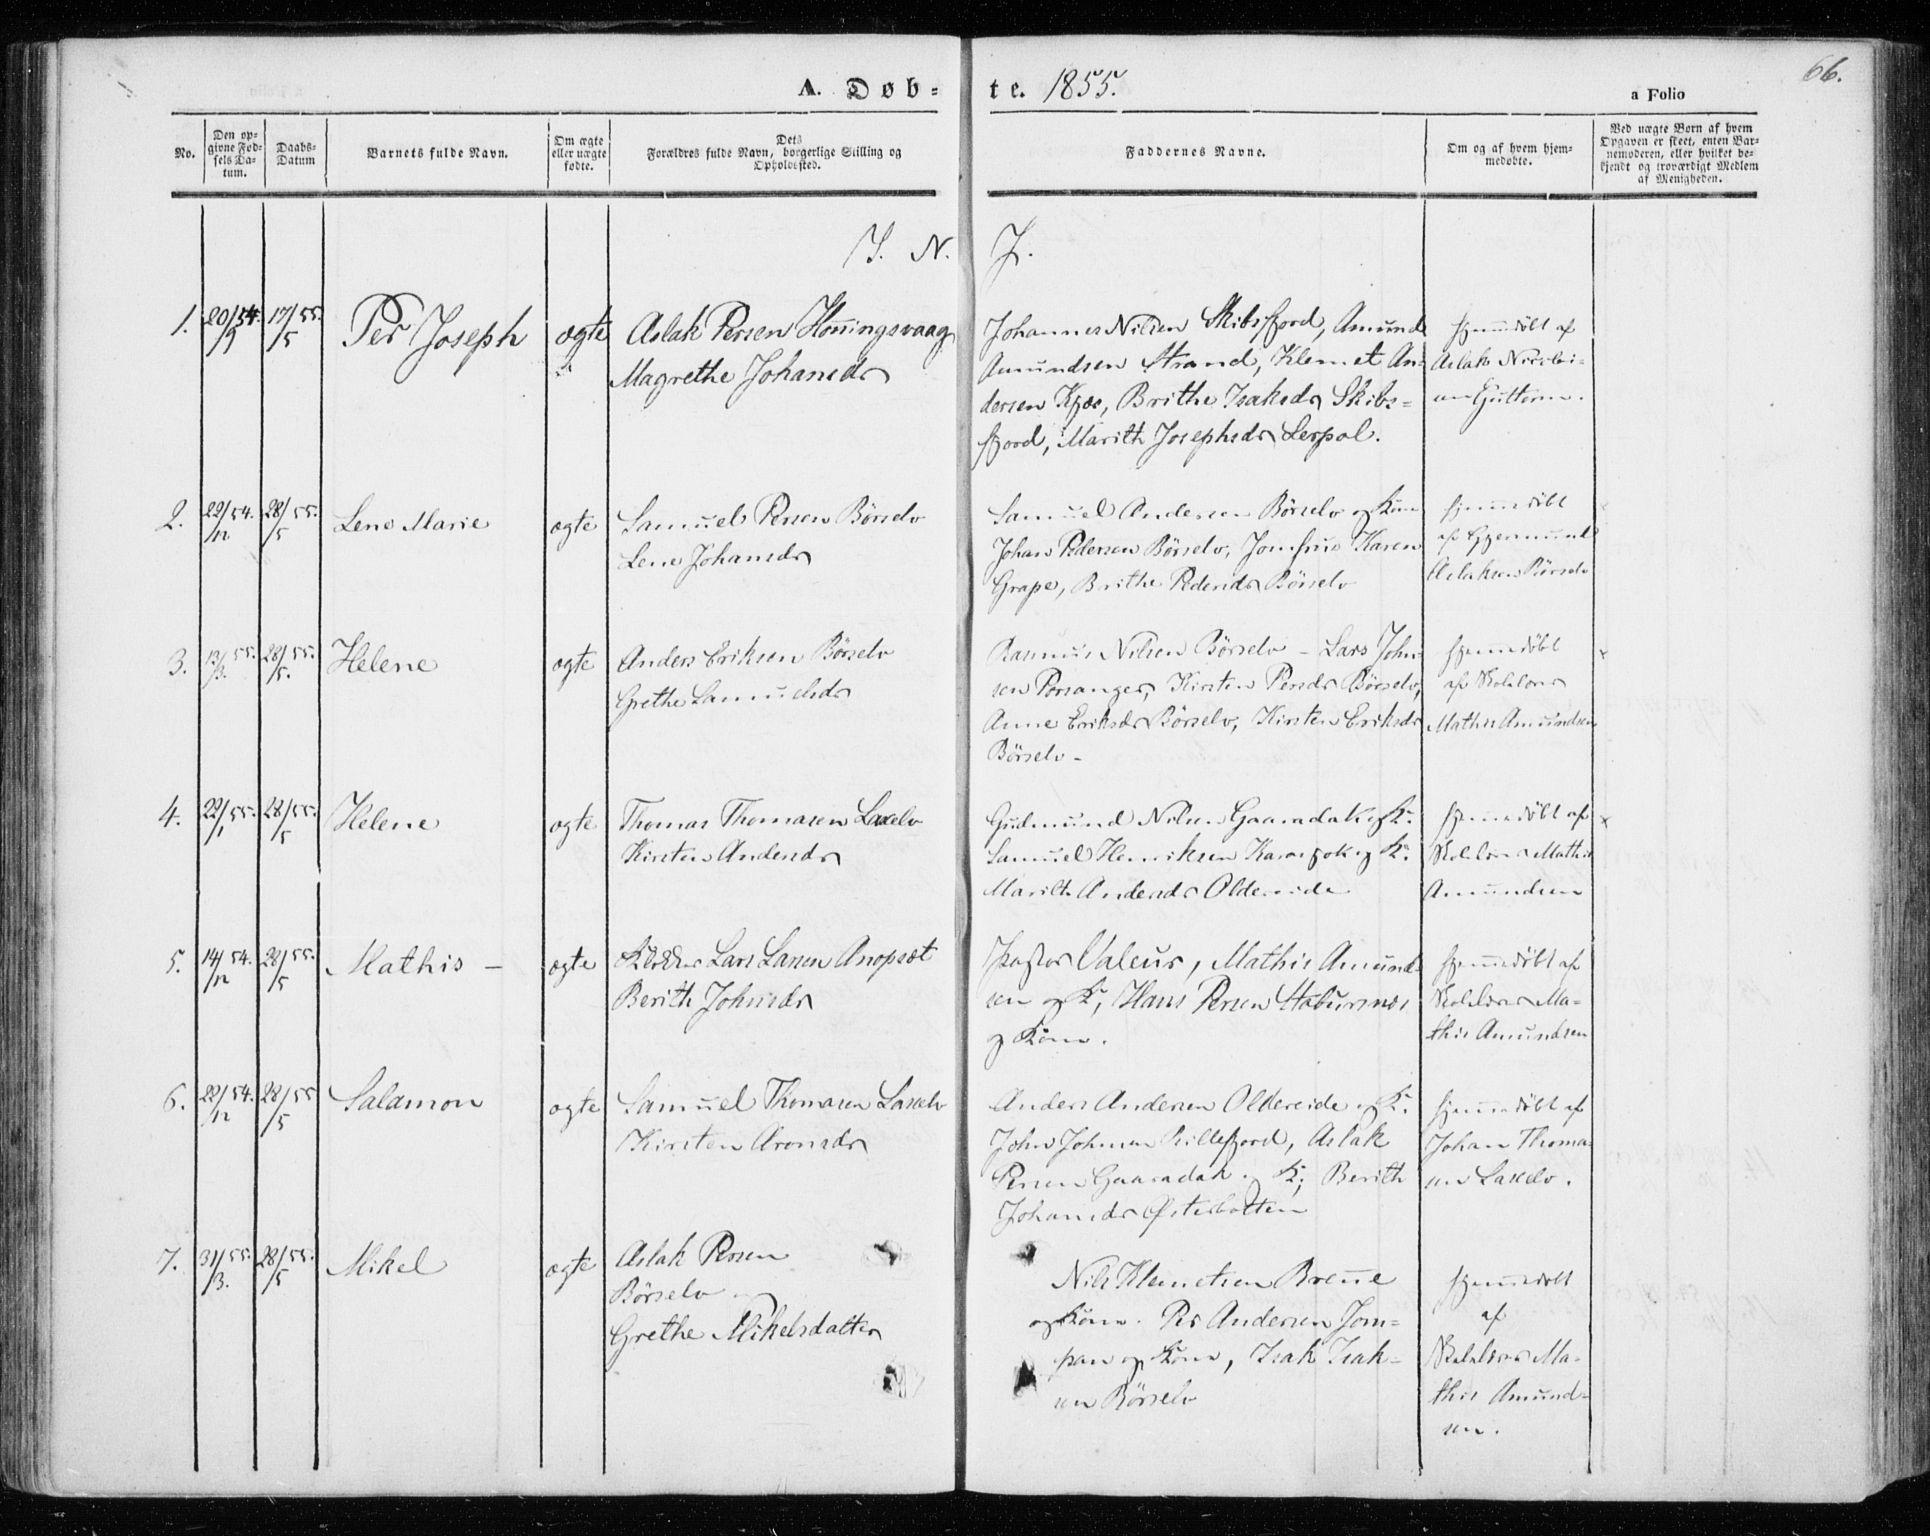 66.
A. Døb-te. 1855.
a Folio
No.
Den opgivne Fødsels Datum.
Daabs-Datum
Barnets fulde Navn.
Om ægte eller uægte fødte.
Dets Forældres fulde Navn, borgerlige Stilling og Opholdssted.
Faddernes Navne.
Om og af hvem hjemmedøbte.
Ved uægte Børn af hvem Opgaven er skeet, enten Barnemoderen, eller hvilket bekjendt og troværdigt Medlem af Menigheden.
I. N. J.
1. 20/9 54. 17/5 55. Per Joseph ægte
Aslak Persen Honningsvaag
Magrethe Johansdr
Johannes Nilsen Skibsfjord, Amund
Amundsen Strand, Klemet An-
dersen Kjæs, Brithe Isaksdr Skibs=
fjord, Marith Josephsdr Lerpol.
hjemmedøbt af
Aslak
Guttorm.
2. 22/12 54. 28/5 55. Lene Marie ægte
Samuel Persen Börselv
Lene Johansdr
Samuel Andersen Börselv og Kone
Johan Pedersen Börselv, Jomfrue Karen
Grape, Brithe Pedersdr Börselv
hjemmedöbt
af Gjermund
Aslaksen Börselv
3. 13/3. 55. 28/5. 55. Helene ægte
Anders Eriksen Börselv
Grethe Samuelsdr
Rasmus Nilsen Börselv - Lars John-
sen Porsanger, Kirsten Persdr Börselv,
Anne Eriksdr Börselv, Kirsten Eriksdr
Börselv -
hjemmedöbt
af Skolelærer
Mathis Amundsen
4. 22/1 55. 28/5 55. Helene ægte
Thomas Thomasen Laxelv
Kirsten Andersdr
Gudmund Nilsen Gaaradak og K.
Samuel Henriksen Karasjok og K.
Marith Andersdr Oldereide
hjemmedöbt af
Skolelærer Mathis
Amundsen
5. 14/12 54. 28/5 55. Mathis - ægte
Lars Larsen Anopset
Berith Johnsdr
Pastor Valeur, Mathis Amund-
sen og K, Hans Persen Staburnæs
og Kone.
hjemmedöbt af
Skolelærer Ma-
this Amundsen
6. 22/12 54. 28/5 55 Salamon ægte
Samuel Thomasen Laxelv
Kirsten Aronsdr
Anders Andersen Oldereide og K.
John Johnsen Billefjord, Aslak
Persen Gaaradak og K; Berith
Johansdr Østerbotten
hjemmedöbt af
Johan Thoma-
sen Laxelv.
7. 31/3. 55. 28/5 55. Mikel ægte
Aslak Persen
Börselv
Grethe Mikelsdatter
Nils Klemetsen Brenne
og Kone. Per Andersen Jom-
pan og Kone, Isak Isak-
sen Börselv
hjemmedöbt
af
Skolelærer Ma-
this Amund-
sen.